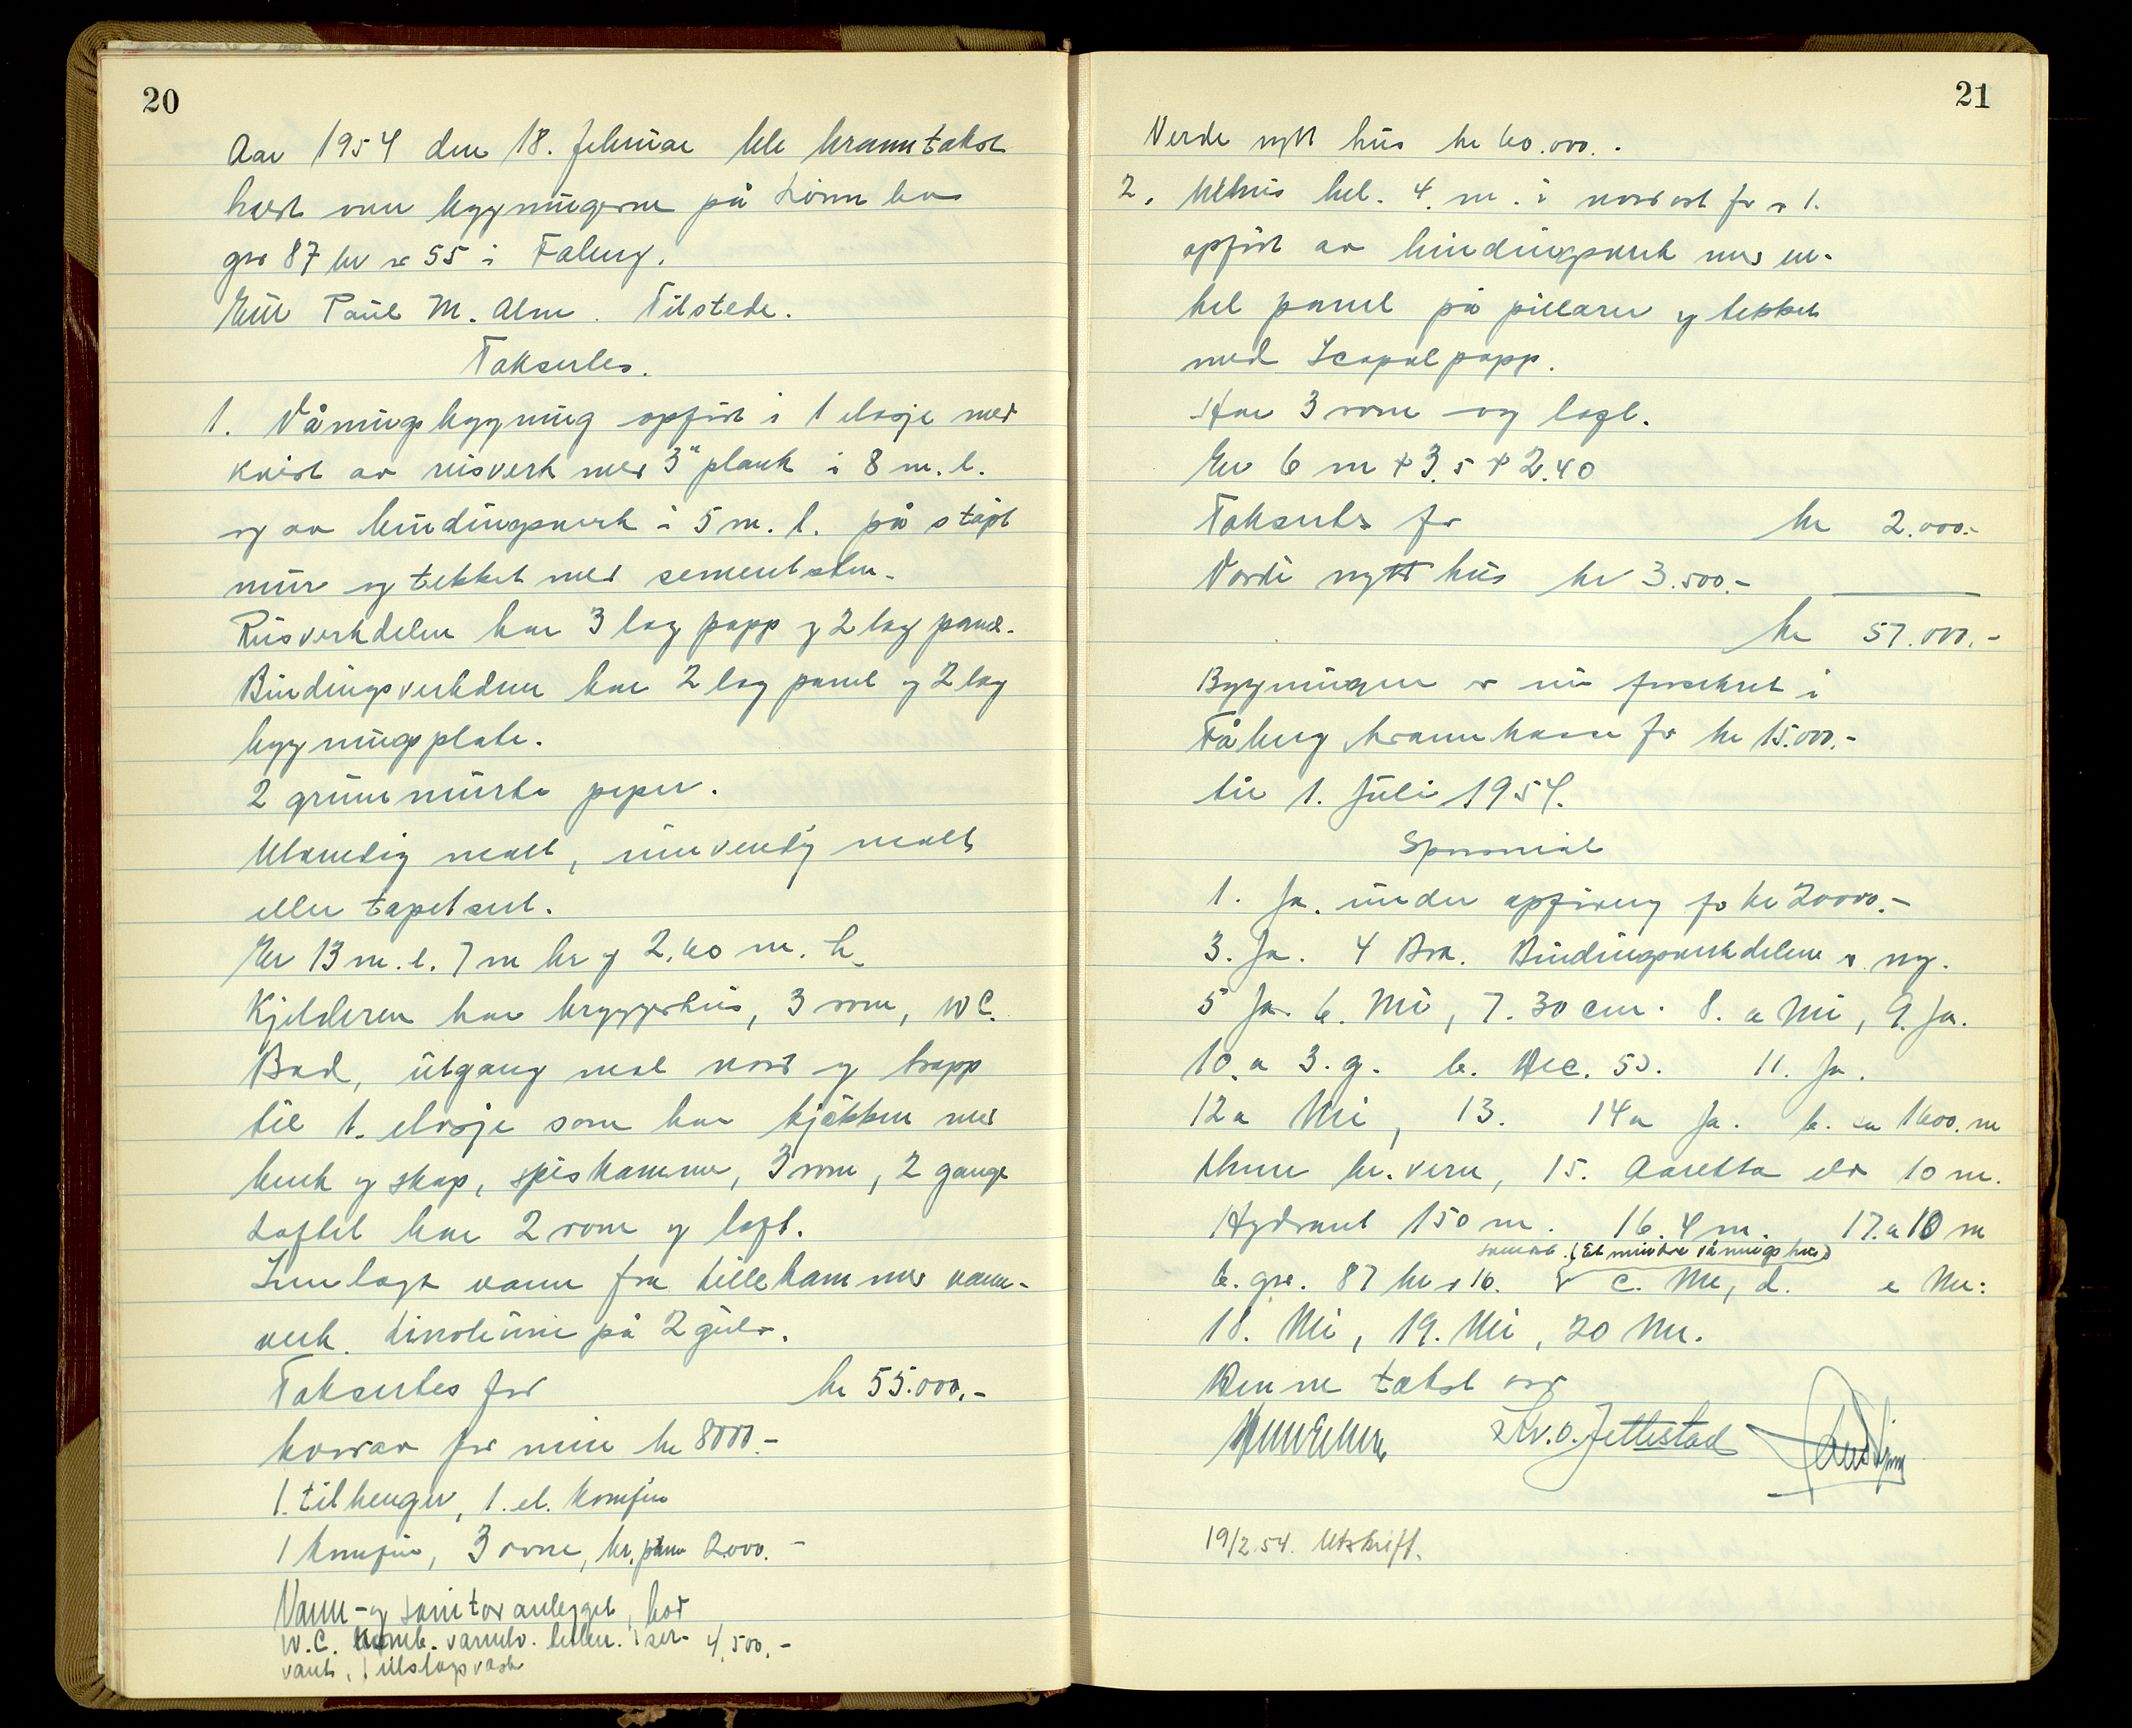 20
Aar 1954 den 18. februar ble branntakst
holdt over bygningerne på Lönn bos
gnr 87 br nr 55 i Faberg.
Eier Paul M. Alm. Tilstede.
Takseres.
1. Våningsbygning opfört i 1 etasje med
kvist av reisverk med 3" plank i 8 m. l.
og av bindingsverk i 5 m. l. på stöpt
mur og tekket med sementsten.
Reisverkdelen har 3 lag papp og 2 lag panel.
Bindingsverkdelen har 2 lag panel og 2 lag
bygningsplate.
2 grunnmurte peper.
Utvendig malt, innvendig malt
eller tapetsert.
Er 13 m. l. 7 m br og 2.60 m. h.
Kjelderen har bryggerhus, 3 rom, WC.
Bad, utgang mot nord og trapp
til 1. etasje som har kjökken med
benk og skap, spiskammer, 3 rom, 2 gange
Loftet har 2 rom og loft.
Innlagt vann fra Lillehammer vann-
verk. Linoleum på 2 gulv.
Takseres for kr 55.000.-
hvorav for mur kr 8000.-
1. tilhenger, 1. el. komfur
1 komfur, 3 ovne, br. pum 2000.-
Vann- og sanitoranlegget, bad
W.C. komb. varmtv. bereder. 1 ser- 4,500.-
vant, 1 utslagsvask
21
Verdi nytt hus kr 60.000..
2. Uthus bel. 4. m. i nordost for nr 1.
opfört av bindingsverk med en-
kel panel på pillarer og tekket
med Icopal papp.
Har 3 rom og loft.
Er 6 m + 3.5 + 2.40
Takseres for kr 2.000.-
Verdi nytt hus kr 3.500.-
kr 57.000.-
Bygningen er nu forsikret i
Fåberg brannkasse for kr 15.000.-
til 1. Juli 1954.
Spörsmål
1. Ja. under opföring for kr 20000.-
3. Ja. 4 Bra. Bindingsverkdelen er ny.
5 Ja. 6. Nei, 7. 30 cm. 8. a Nei, 9. Ja.
10. a 3. g. b. Dec. 53. 11. Ja.
12a Nei, 13. 14a Ja. b. ca 1600. m
br. vern, 15. Aaretta elv 10 m.
Hydrant 150 m. 16. 4 m. 17. a 10 m
(Et mindre våningshus)
b. gnr. 87 br nr 16. c. Nei, d. e Nei:
18. Nei, 19. Nei, 20 Nei.
Denne takst var
O. Jettestad
19/2 54. Utskrift.